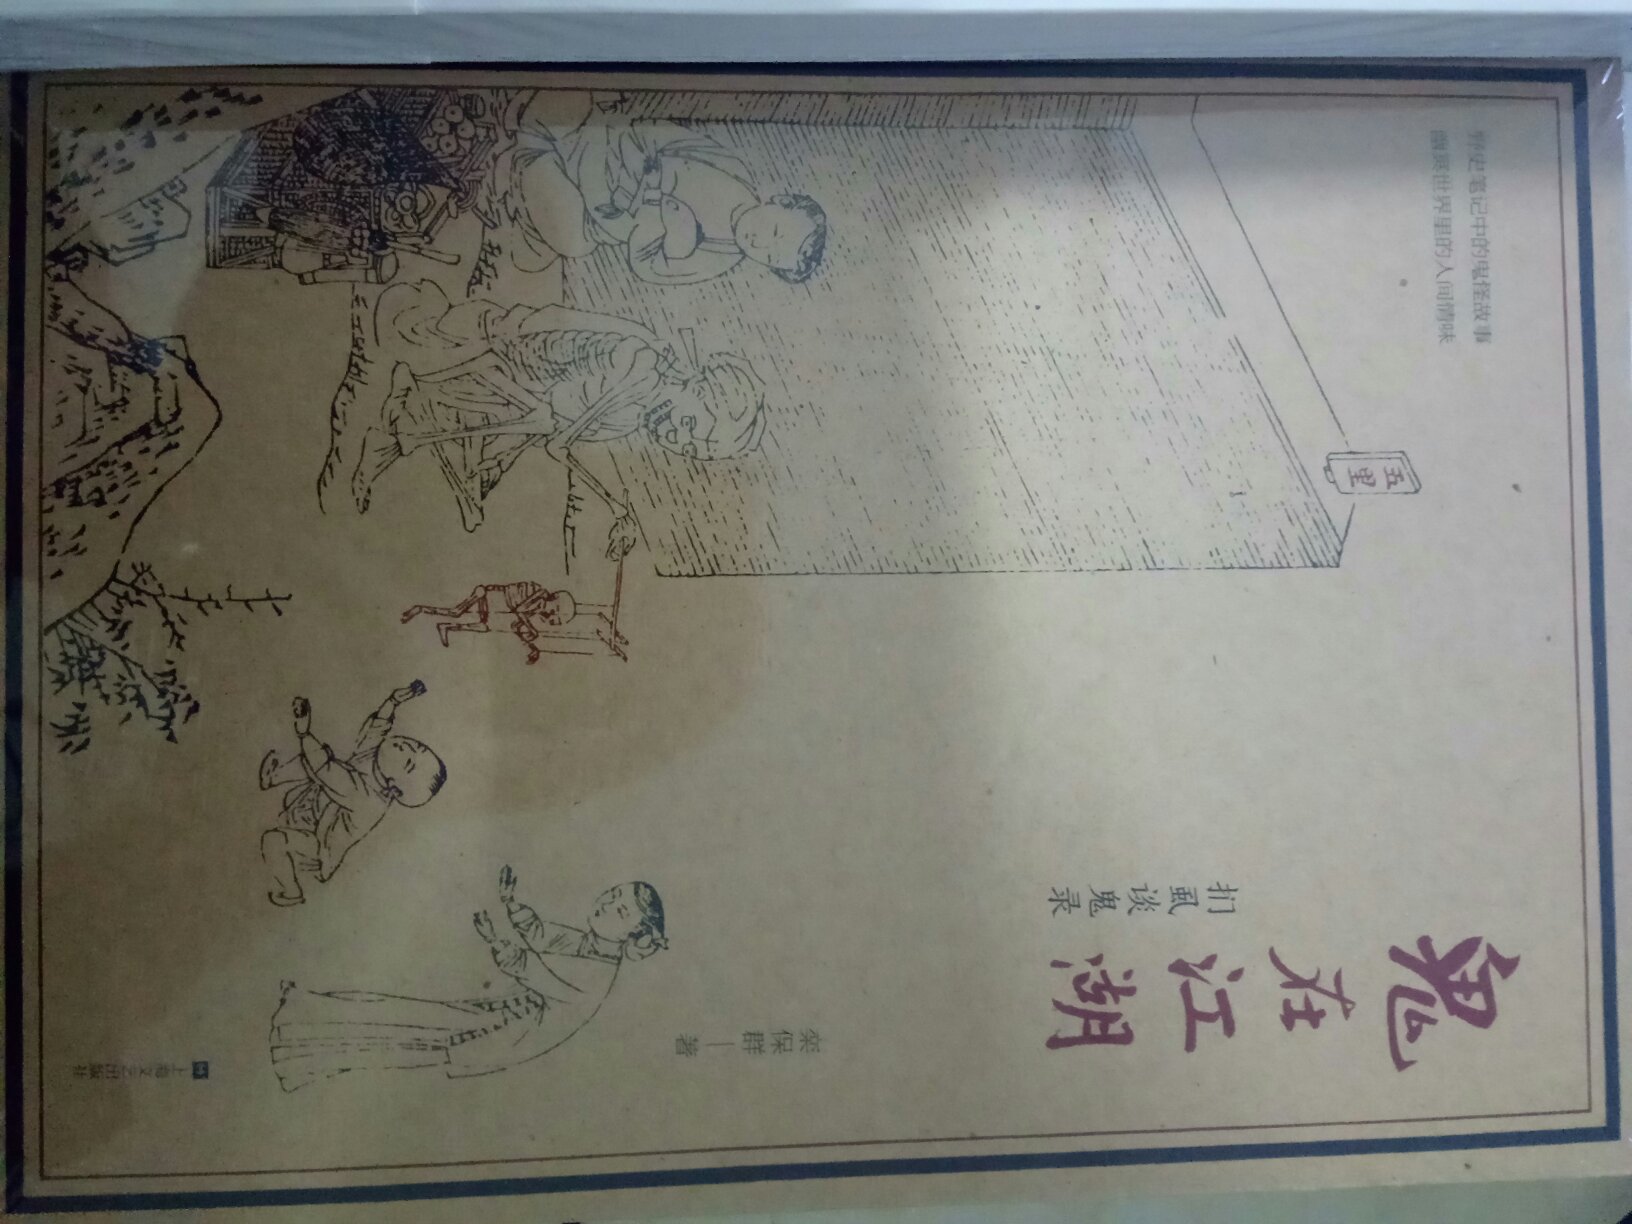 鬼在江湖
扪虱谈鬼录
史笔记中的鬼怪故事
世界里的人间情味
五里
栾保群｜著
上海文艺出版社